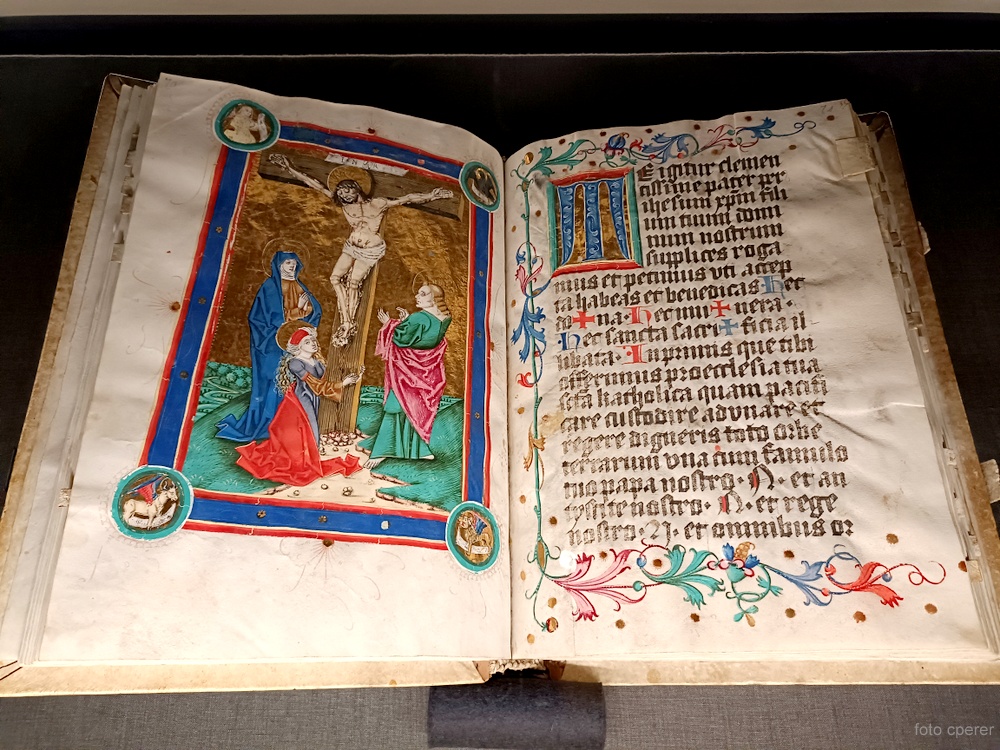 INRI
TE igitur clemen
tissime pater per
ihesum xpm fili
um tuum dom
num nostrum
supplices roga
mus et petimus vti accep
ta habeas et benedicas Hec
do✝na· Hec mu✝nera·
Hec sancta sacri✝ficia il
libata· Inprimis que tibi
offerimus pro ecclesia tua
scta katholica quam pacifi
care custodire advnare et
regere digneris toto orbe
terrarum vna cum famulo
tuo papa nostro· N· et an
tistite nostro· N· et rege
nostro· N· et omnibus or
foto cperer